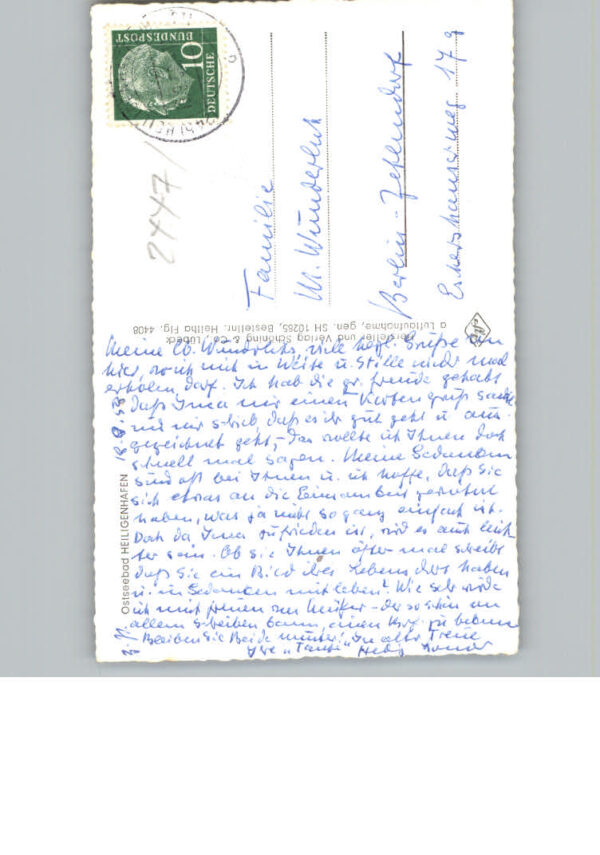 DEUTSCHE
BUNDESPOST
10
2447/
Familie
M. Wunderlich
Berlin-Zehlendorf
17 a
a Luftaufnahme, gen. SH 10285, Bestellnr. Heilha Flg. 4408
Hersteller und Verlag Schöning & Co., Lübeck
Ostseebad HEILIGENHAFEN
Meine lb. Wunderlichs, viele herzl. Grüße von
hier, wo ich mich in Weite u. Stille wieder mal
erholen darf. Ich hab die gr. Freude gehabt
daß Inra mir einen Kartengruß sandte
und mir schrieb daß es ihr gut geht u. aus-
gezeichnet geht, - Das wollte ich Ihnen doch
schnell mal sagen. Meine Gedanken
sind oft bei Ihnen u. ich hoffe, daß Sie
sich etwas an die Einsamkeit gewöhnt
haben, was ja nicht so ganz einfach ist.
Doch da Inra zufrieden ist, wird es auch leich-
ter sein. Ob sie Ihnen öfter mal schreibt
daß Sie ein Bild ihres Lebens dort haben
u. in Gedanken mitleben? Wie sehr würde
ich mich freuen - der so schön von
allem schreiben kann, einen zu bekom
Bleiben Sie Beide munter! In alter Treue
Ihre "Tante"